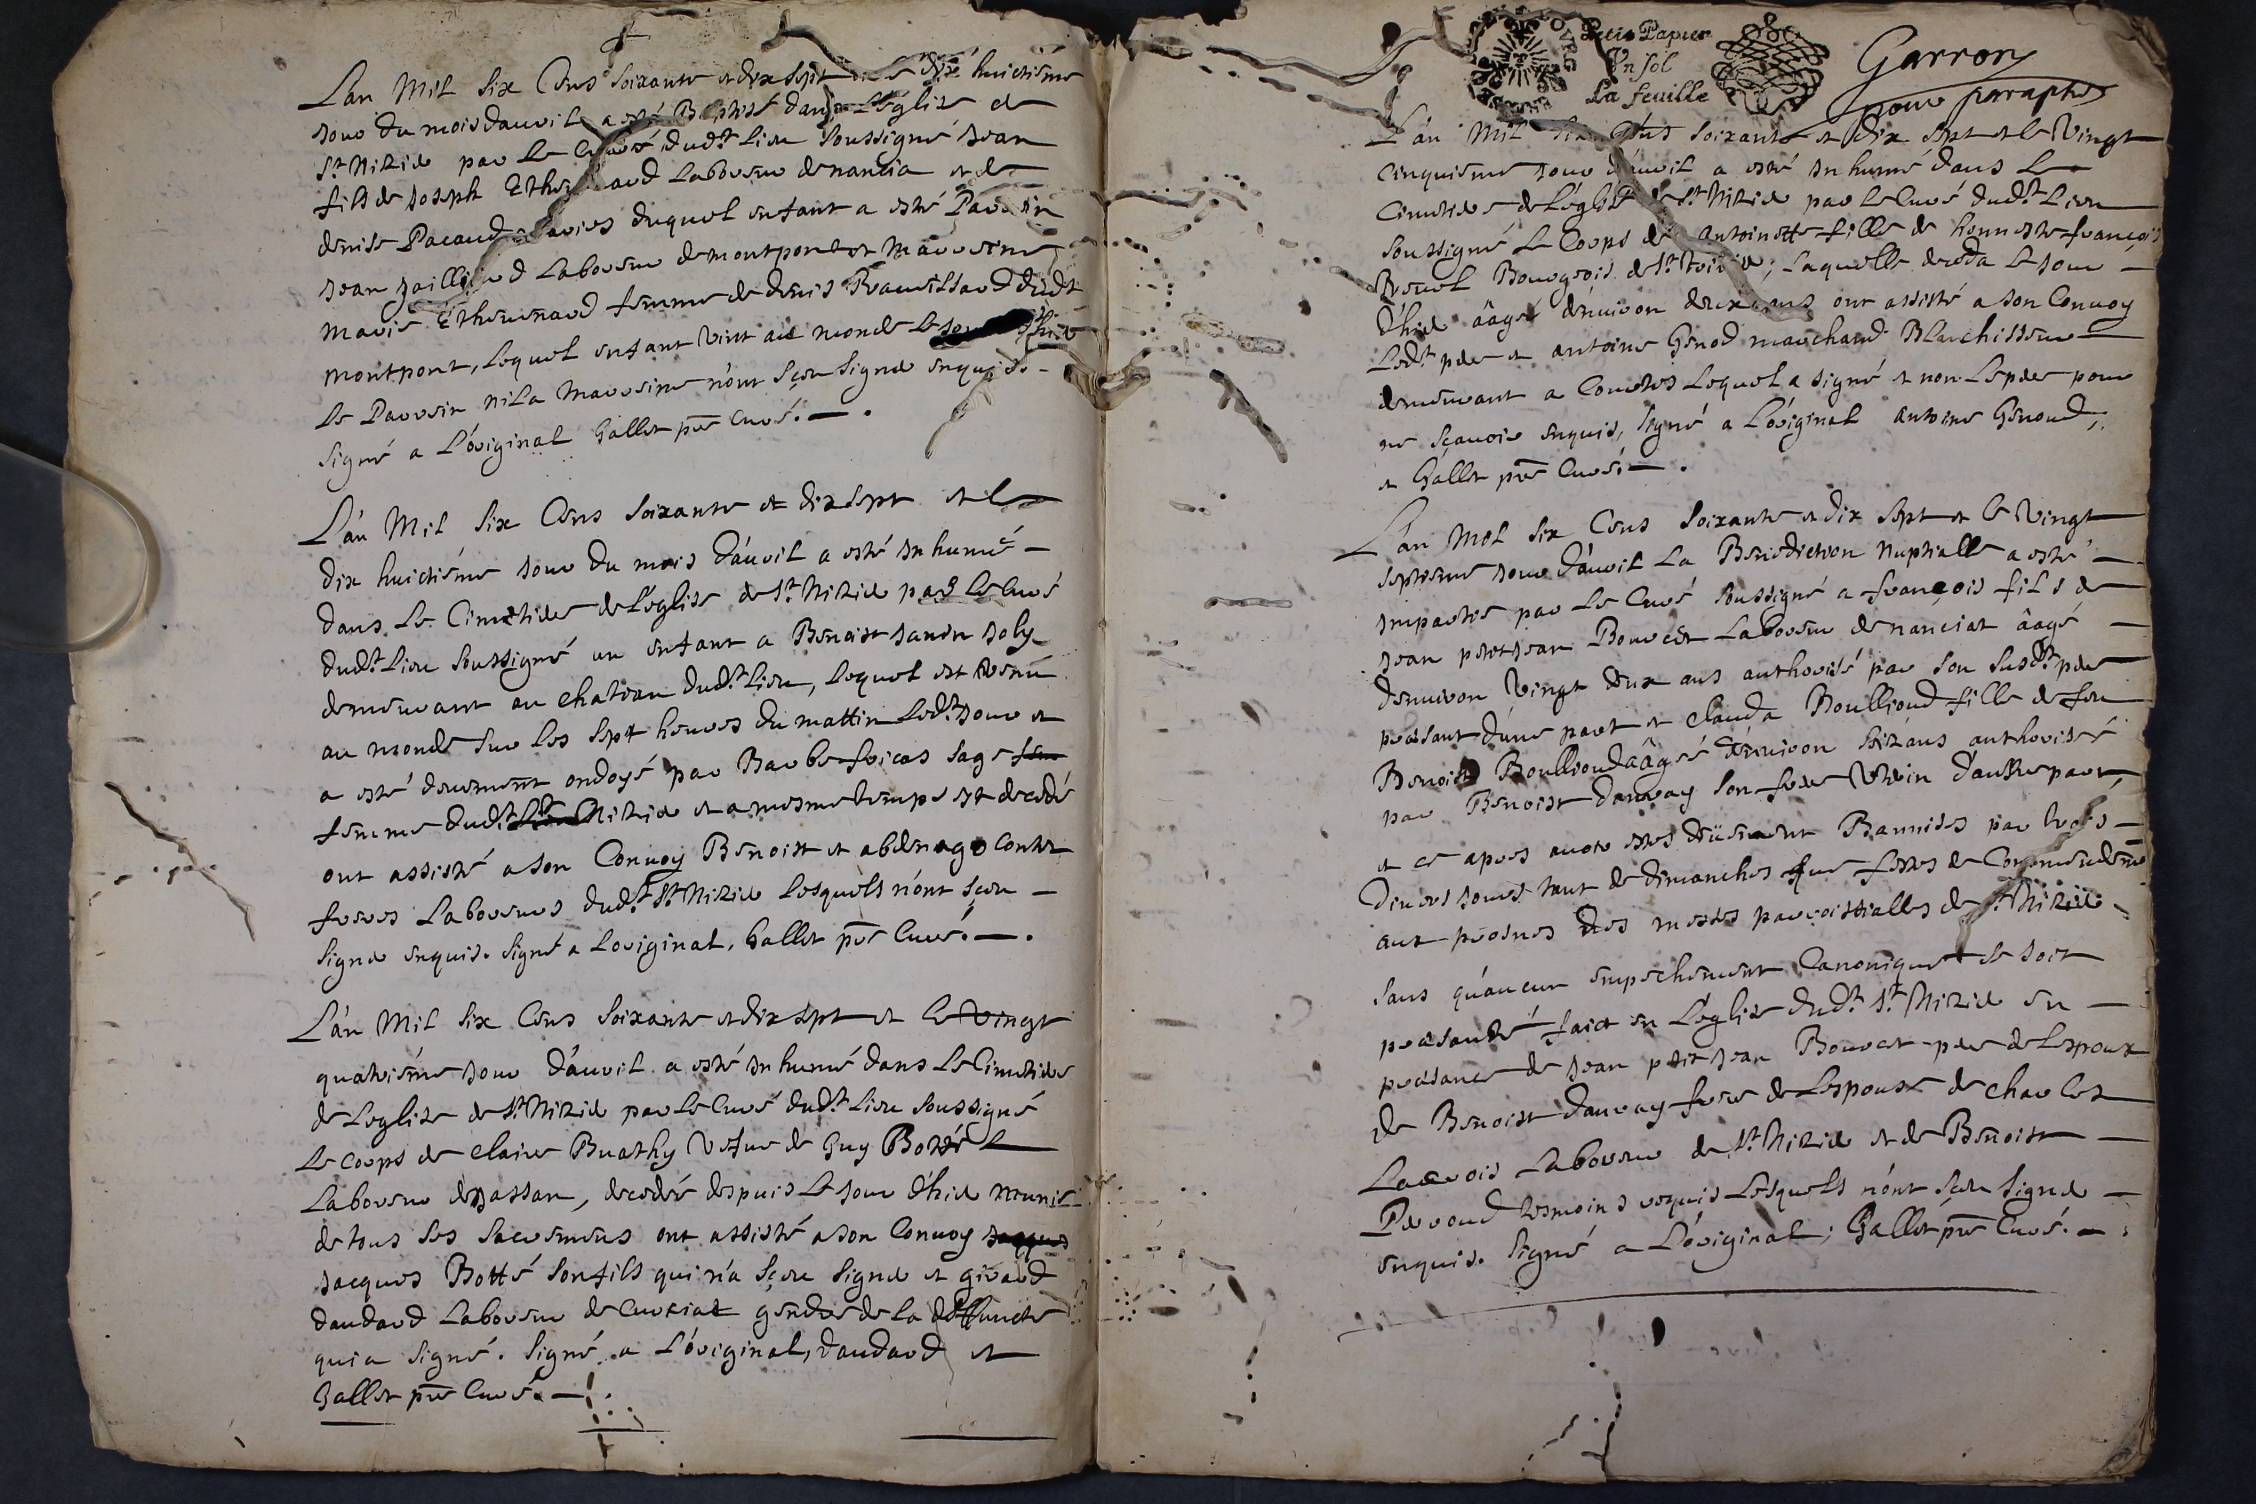 L'an Mil Six Cens Soixante et dix Sept et le dix huictiéme
jour du mois dauvril a esté Baptisé dans L'église de
St. Nizier par Le Curé dudt. Lieu Soussigné Jean
fils de Joseph Ethevenard Laboureur de nancia et de
denise Pacaud maries duquel enfant a esté Parrin
Jean Jailliend Laboureur de montpont et Marreine
Marie Ethevenard femme de denis dudt
montpont, Lequel enfant vint au monde le jour d'hier
Le Parrein ni La Marreine n'ont Sçeu Signer enquis.
Signé a L'original Gallet pre Curé.
L'an Mil Six Cens Soixante et dix Sept et le
dix huictiéme jour du mois d'avril a esté inhumé
dans Le Cimetiere de L'eglise de St. Nizier par Le Curé
dudt. Lieu Soussigné un enfant a Benoist Janin Joly
demeurant au chateau dudt. Lieu, Lequel est venu
au monde Sur Les Sept heures du mattin Ledt. jour et
a esté deuement ondoyé par Barbe fricas Sage fem
femme dudt. St Nizier et a mesme temps est decedé
ont assisté a Son Convoy Benoist et abdenago Contet
freres Laboureurs dudt. St. Nizier Lesquels n'ont Sçeu
Signer enquis. Signé a Loriginal. Gallet pre Curé.
L'an Mil Six Cens Soixante et dix Sept et le Vingt
quatriéme jour d'avril a esté inhumé dans Le Cimetiere
de Leglise de St. Nizier par Le Curé dudt. Lieu Soussigné
Le Corps de Claire Buathy Vefve de Guy Botté
Laboureur de Jassan, decedée despuis Le jour d'hier munie
de tous Ses Sacremens ont assisté a Son Convoy Jacques
Jacques Botté Son fils qui n'a Sçeu Signer et girard
daudard Laboureur de Curtiat gendre de La deffuncte
qui a Signé. Signé a L'original, daudard et
Gallet pre Curé.
Petit Papier
Un sol
La feuille
Garron
pour paraphe
L'an Mil Six Cens Soixante et dix Sept et le Vingt
Cinquieme jour d'avril a esté inhumé dans Le
Cimetiere de L'eglise de St. Nizier par Le Curé dudt. Lieu
Soussigné Le Corps de Antoinette fille de honneste françois
Revel Bourgeois de St. Trivier; Laquelle deceda Le jour
d'hier âagée d'environ deux ans ont assisté a Son Convoy
Ledt. pere et antoine Genod marchand Blanchisseur
demeurant a Courtes Lequel a signé et non Le pere pour
ne Sçavoir enquis, Signé a L'original Antoine Genoud,
et Gallet pre Curé.
L'an Mil Six Cens Soixante et dix Sept et le Vingt
Septieme jour d'avril La Benediction Nuptialle a esté
impartie par Le Curé Soussigné a françois fils de
Jean petit Jean Bouvet Laboureur de nanciat âagé
denviron Vingt deux ans authorisé par Son Susdt. pere
presant d'une part et Clauda Boulliond fille de feu
Benoist Boulliond âagée d'environ Seize ans authorisée
par Benoist danvay Son frere Utrin d'autre part,
et ce apres avoir estes deüement Bannies par trois
divers jours tant de dimanches que festes de Commandemt
aux prosnes des messes parroissialles de St. Nizier
Sans qu'aucun empechement Canonique Se Soit
presanté faict en L'église dudt. St. Nizier en
presance de Jean petit Jean Bouvet pere de Lespoux
de Benoist danvay frere de Lespouse de Charles
Lacroix Laboureur de St. Nizier et de Benoist
Perroud tesmoins requis Lesquels n'ont Sçeu Signer
enquis. Signé a L'original; Gallet pre Curé.